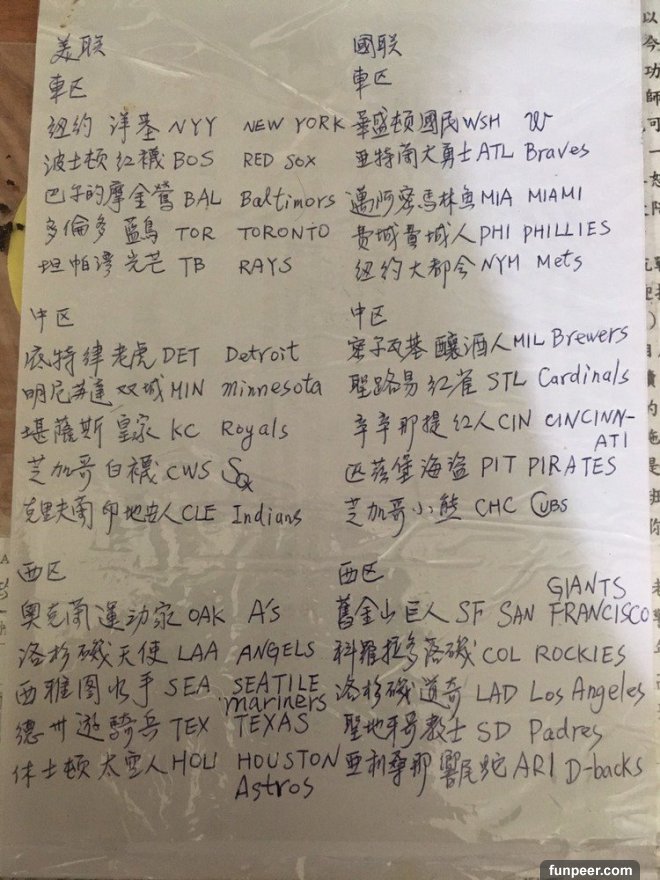 美联
車区
纽约 洋基 NYY NEW YORK
波士顿 红襪 BOS RED SOX
巴尔的摩金莺 BAL Baltimors
多倫多 藍鳥 TOR TORONTO
坦帕湾 光芒 TB RAYS
中区
底特律老虎 DET Detroit
明尼苏達 双城 MIN minnesota
堪薩斯 皇家 KC Royals
芝加哥白襪 CWS SOX
克里夫蘭 印地安人 CLE Indians
西区
奥克蘭 運动家 OAK A's
洛杉磯天使 LAA ANGELS
西雅图水手 SEA SEATILE
mariners
德州 遊騎兵 TEX TEXAS
休士顿 太空人 HOU HOUSTON
Astros
國联
車区
華盛顿國民 WSH W
亚特蘭大勇士 ATL Braves
邁阿密馬林鱼 MIA MIAMI
费城費城人 PHI PHILLIES
纽约大都会 NYM Mets
中区
密尔瓦基 釀酒人 MIL Brewers
聖路易 红雀 STL Cardinals
辛辛那提 红人 CIN CINCINN-
ATI
匹茲堡海盗 PIT PIRATES
芝加哥小熊 CHC CUBS
西区
GIANTS
舊金山巨人 SF SAN FRANCISCO
科羅拉多落磯 COL ROCKIES
洛杉磯 道奇 LAD Los Angeles
聖地牙哥教士 SD Padres
亚利桑那 響尾蛇 ARI D-backs
funpeer.com